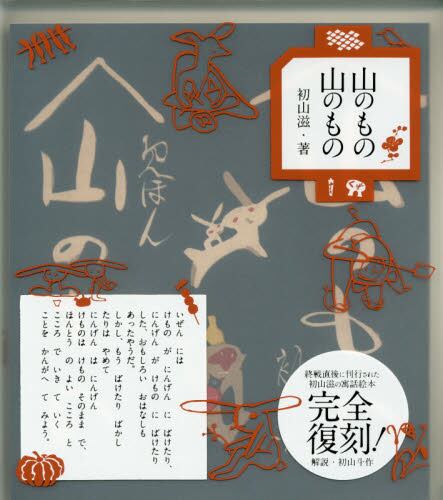 山のもの
山のもの
初山滋・著
えほん
山の
いぜん には
けもの が にんげん に ばけたり、
にんげん が けもの に ばけたり
した、おもしろい おはなしも
あったやうだ。
しかし、もう ばけたり ばかし
たりは やめて
にんげん は にんげん
けものは けもの そのまま で、
ほんとう の よい こころ と
こころ で いき て いく
ことを かんがへ て みよう。
終戦直後に刊行された
初山滋の寓話絵本
完全
復刻!
解説・初山斗作